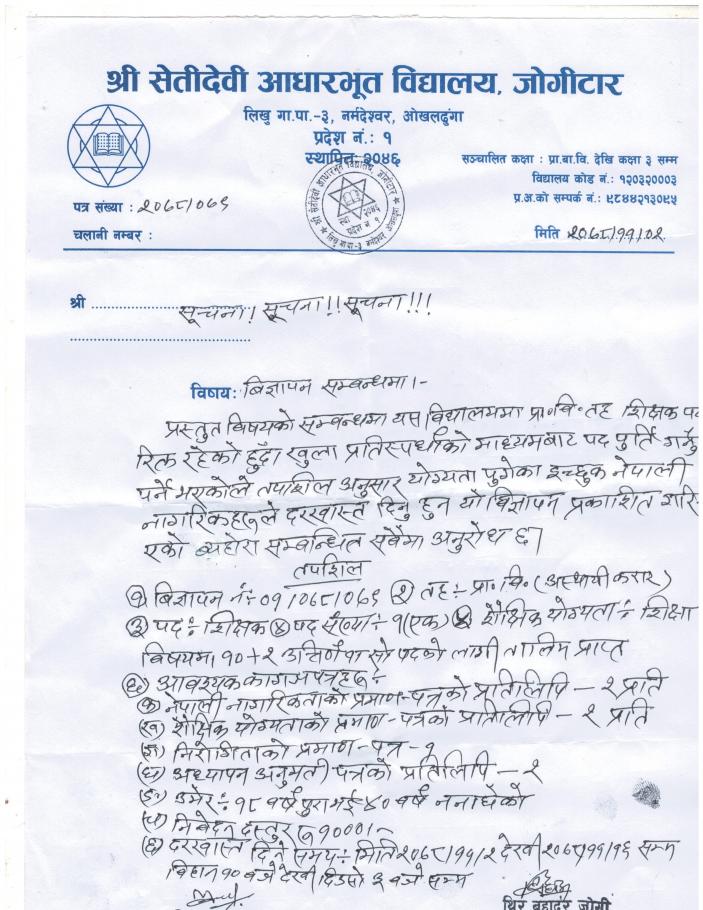 श्री सेतीदेवी आधारभूत विद्यालय, जोगीटार
लिखु गा.पा.-३, नर्मदेश्वर, ओखलढुंगा
प्रदेश नं.: १
स्थापित: २०४६
सञ्चालित कक्षा : प्रा.बा.वि. देखि कक्षा ३ सम्म
विद्यालय कोड नं.: १२०३२०००३
प्र.अ.को सम्पर्क नं.: ९८४४२१३०९५
पत्र संख्या : २०७८/०७९
चलानी नम्बर :
मिति २०७८/११/०२
श्री सूचना! सूचना!! सूचना!!!
विषय: बिज्ञापन सम्बन्धमा।-
प्रस्तुत बिषयको सम्बन्धमा यस विद्यालयमा प्रा॰बि॰तह शिक्षक पद
रिक्त रहेको हुँदा खुला प्रतिस्पर्धाको माध्यमबाट पद पुर्ति गर्नु
पर्ने भएकोले तपशिल अनुसार योग्यता पुगेका इच्छुक नेपाली
नागरिकहरुले दरखास्त दिनु हुन यो बिज्ञापन प्रकाशित गरि-
एको ब्यहोरा सम्बन्धित सबैमा अनुरोध छ।
तपशिल
१) बिज्ञापन नंः ०१/०७८/०७९ २) तहः प्रा॰ बि॰ (अस्थायी करार)
३) पदः शिक्षक ४) पद संख्याः १(एक) ५) शैक्षिक योग्यताः शिक्षा
बिषयमा १०+२ उत्तिर्ण वा सो पदको लागी तालिम प्राप्त
६) आवश्यक कागजपत्रहरुः
क) नेपाली नागरिकताको प्रमाण-पत्रको प्रतिलिपि - १ प्रति
ख) शैक्षिक योग्यताको प्रमाण-पत्रको प्रतिलिपि - १ प्रति
ग) निरोगिताको प्रमाण-पत्र-१
घ) अध्यापन अनुमती पत्रको प्रतिलिपि - १
ङ) उमेरः १८ वर्ष पुरा भई ४० वर्ष ननाघेको
च) निबेदन दस्तुर रु १०००।-
छ) दरखास्त दिने समयः मिति २०७८/११/२ देखी २०७८/११/१६ सम्म
बिहान १० बजे देखी दिउसो ३ बजे सम्म
थिर बहादुर जोगी